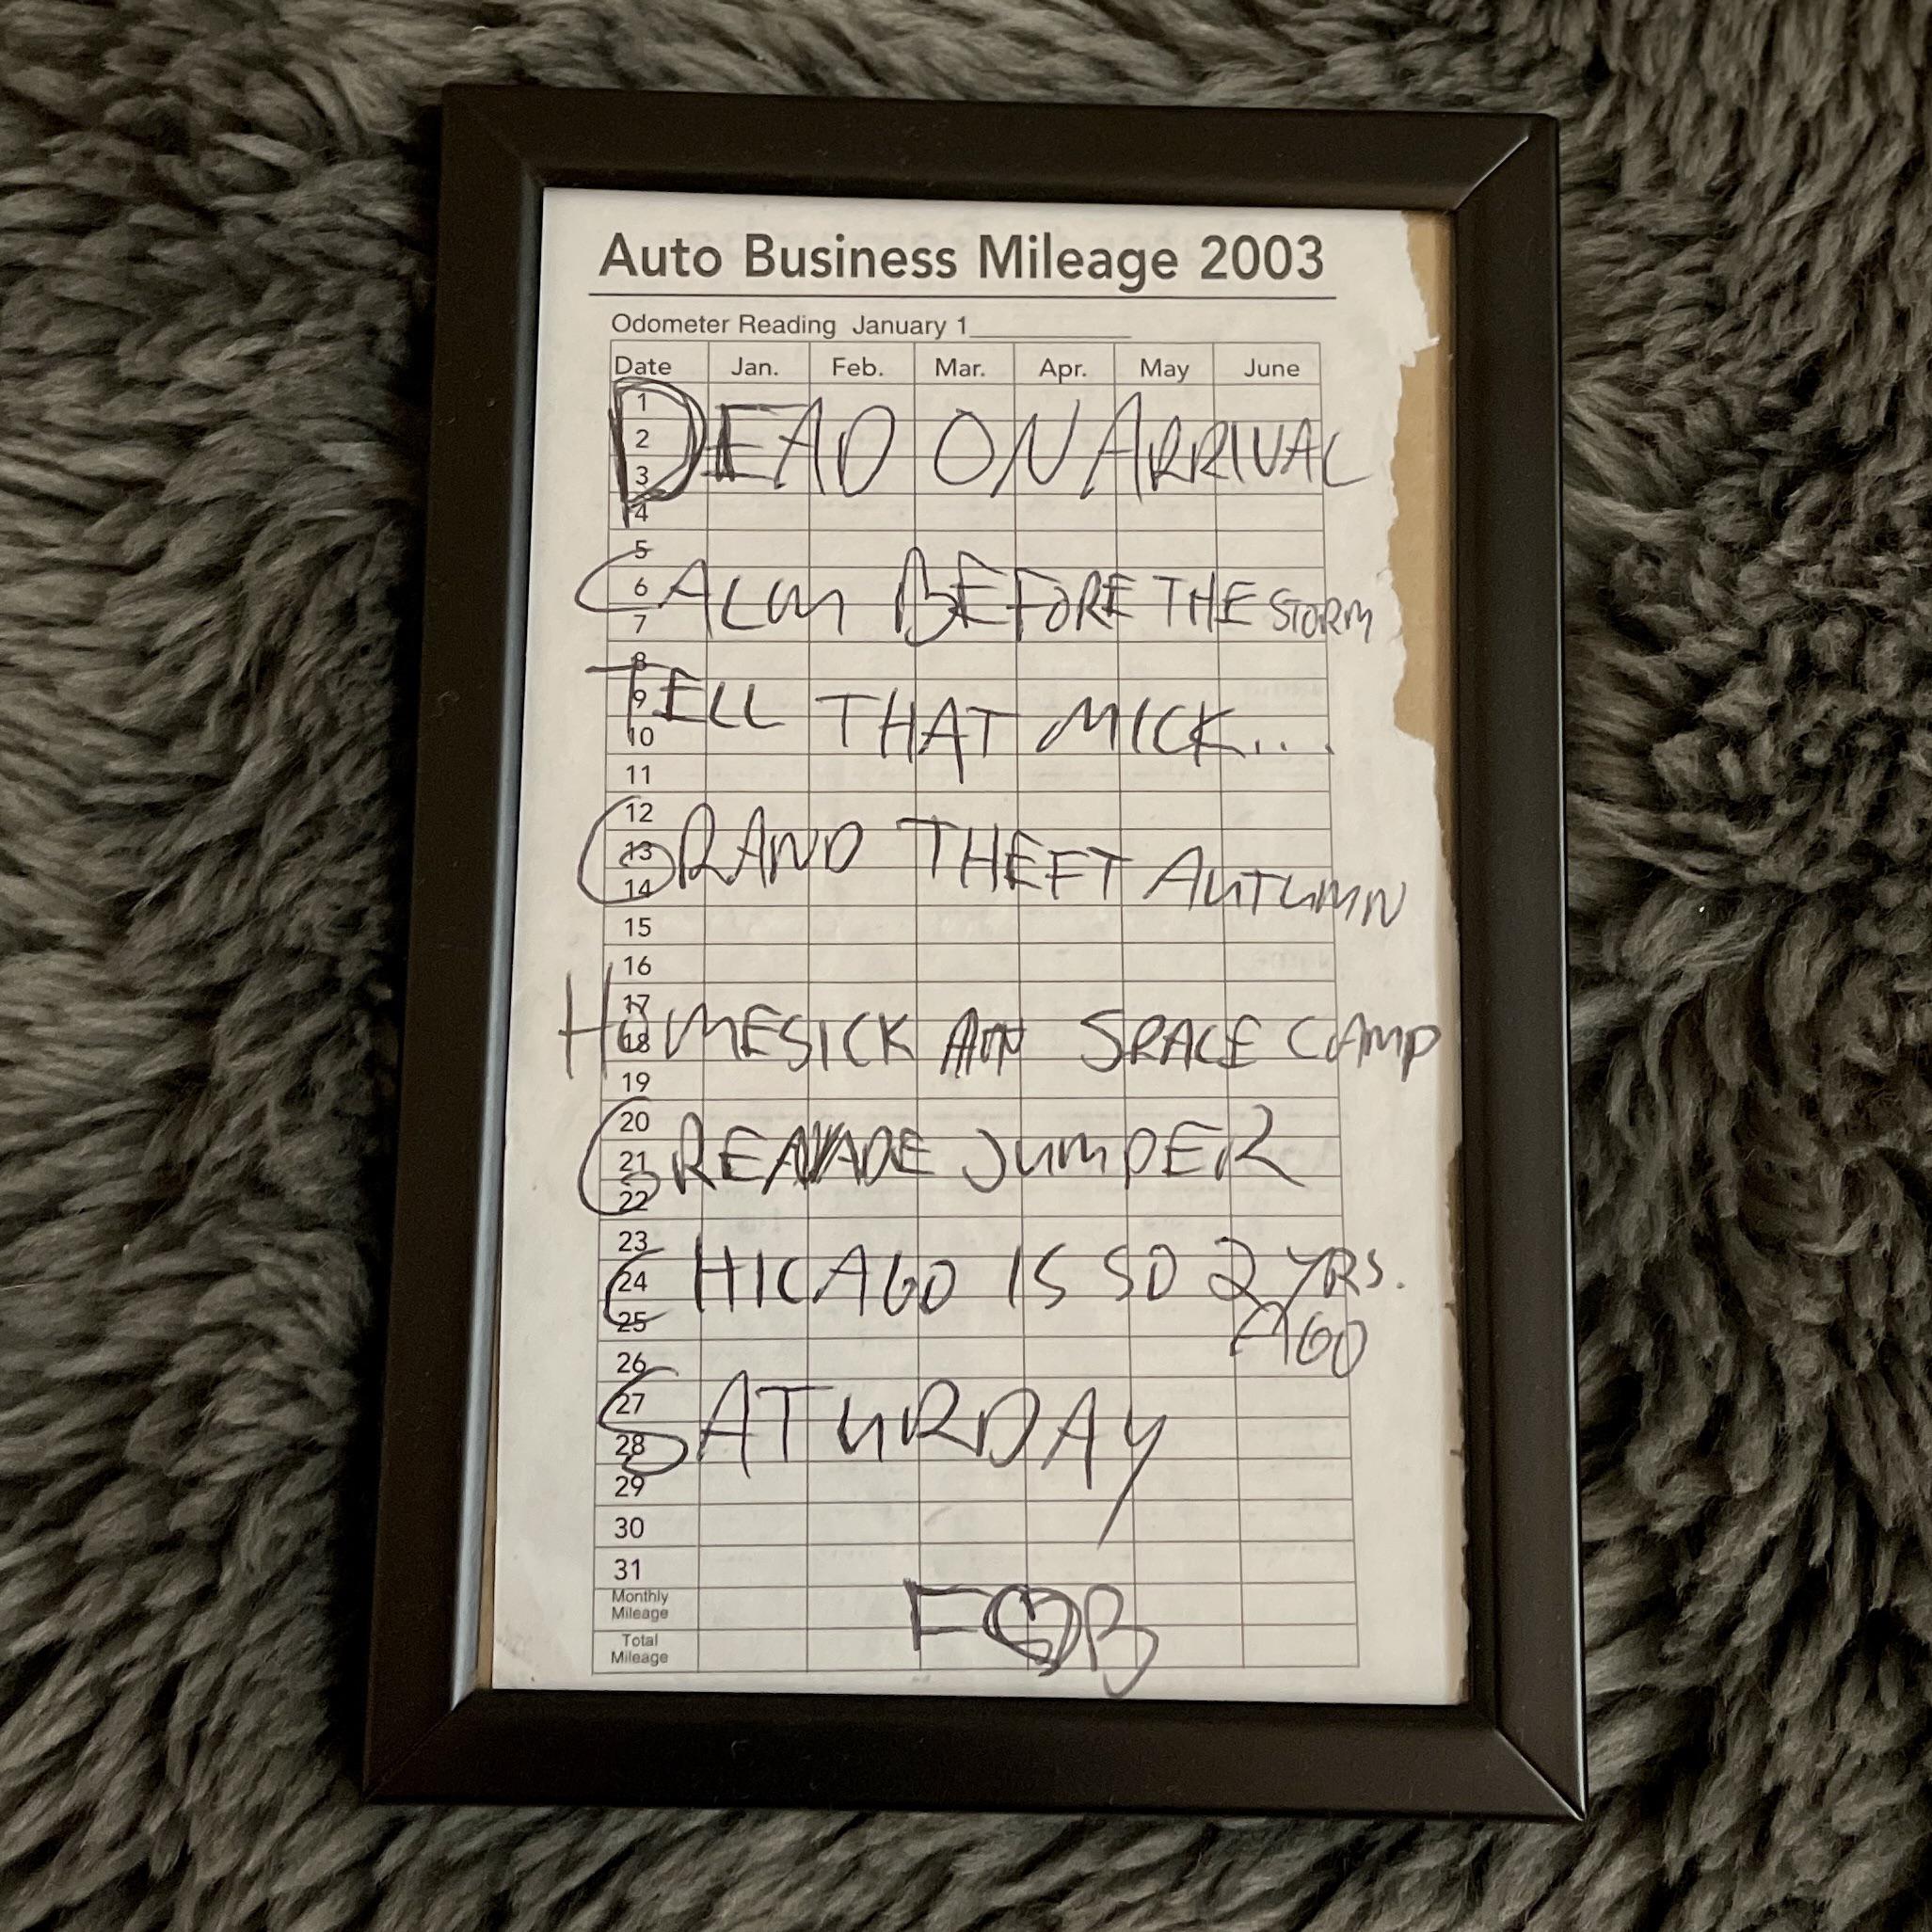 Auto Business Mileage 2003
Odometer Reading January 1
Date Jan. Feb. Mar. Apr. May June
1
DEAD ON ARRIVAL
2
3
4
5
CALM BEFORE THE STORM
6
7
8
TELL THAT MICK...
9
10
11
12
GRAND THEFT AUTUMN
13
14
15
16
17
HOMESICK SPACE CAMP
18
19
20
GRENADE JUMPER
21
22
23
CHICAGO IS SO 2 YRS.
24
AGO
25
26
SATURDAY
27
28
29
30
31
Monthly
Mileage
FOB
Total
Mileage